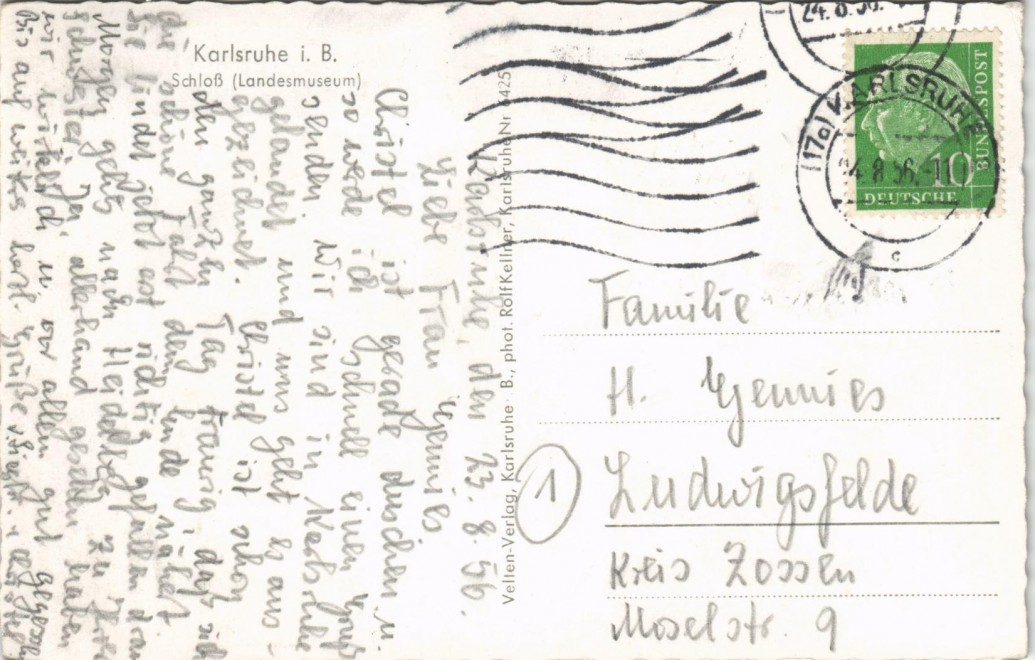 Karlsruhe i. B.
Schloß (Landesmuseum)
Karlsruhe, den 23. 8. 56.
Liebe Frau Gennies.
Christel ist gerade duschen u.
so werde ich schnell einen Gruß
senden. Wir sind in Karlsruhe
gelandet und uns geht es aus-
gezeichnet. Christel ist schon
den ganzen Tag traurig, daß sich
die schöne Fahrt dem Ende nähert
Sie findet jetzt erst richtig gefallen dran
Morgen gehts nach Heidelberg zu
Schwester. Da allerhand gesehen haben
wir wirklich u. vor allem gut
Bis auf weiteres herzl. Grüße
Velten-Verlag, Karlsruhe · B., phot. Rolf Kellner, Karlsruhe Nr 6425
24.8.56.
(17a) KARLSRUHE
24.8.56.-11
c
10
DEUTSCHE
BUNDESPOST
Familie
H. Gennies
1
Ludwigsfelde
Kreis Zossen
Moselstr. 9